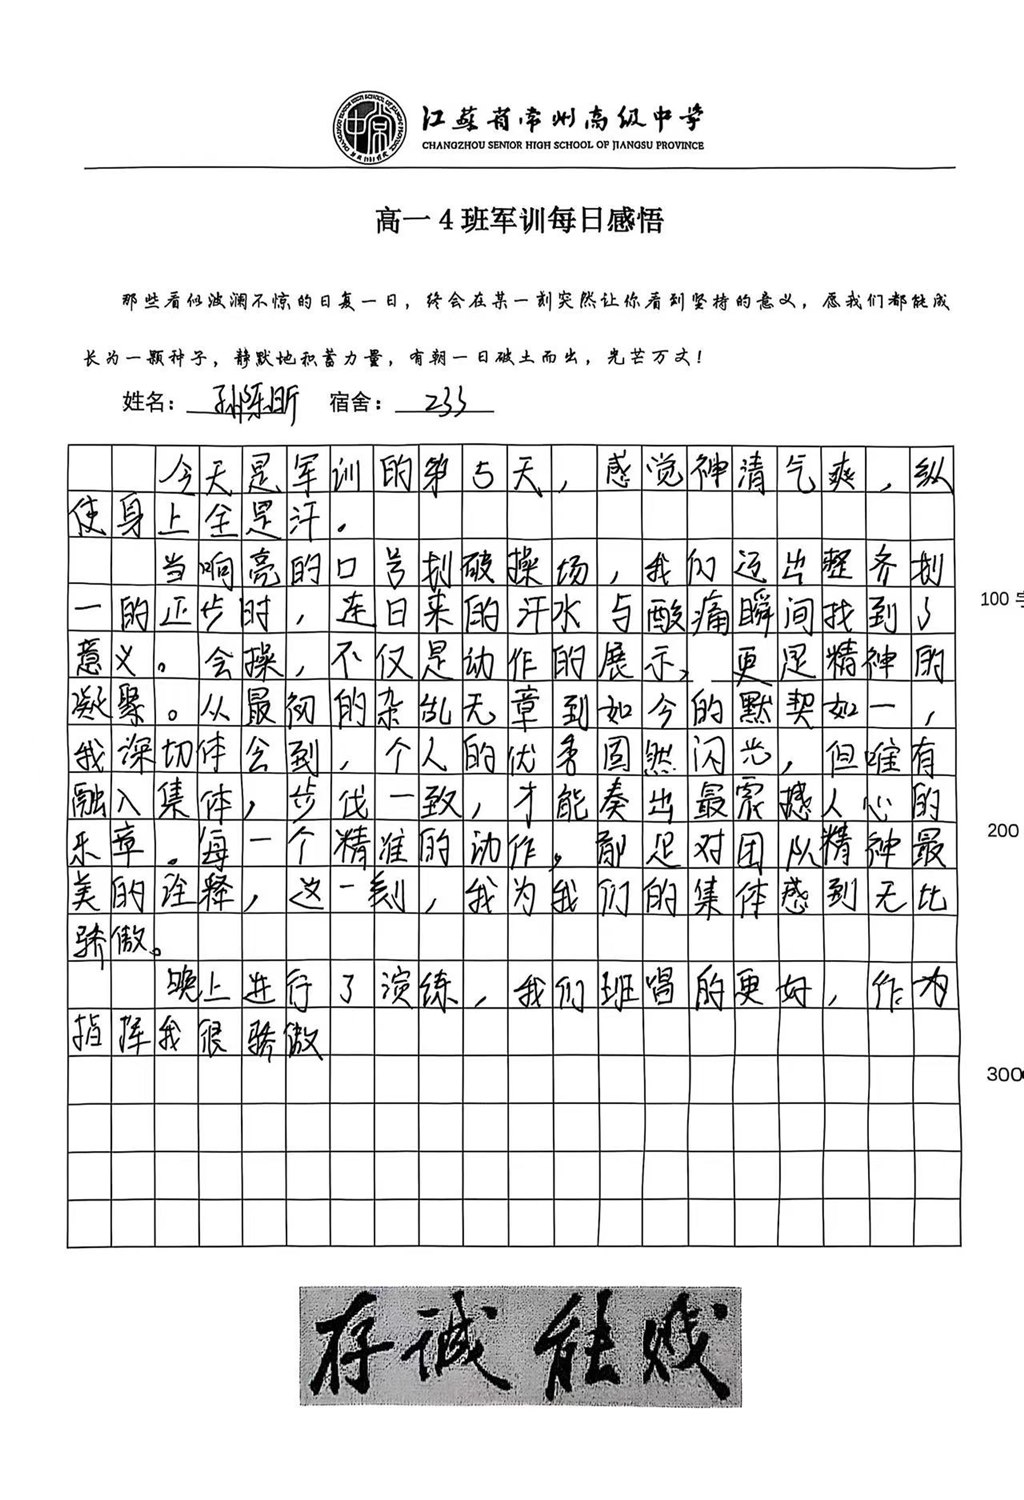 江苏省常州高级中学
CHANGZHOU SENIOR HIGH SCHOOL OF JIANGSU PROVINCE
高一4班军训每日感悟
那些看似波澜不惊的日复一日，终会在某一刻突然让你看到坚持的意义，愿我们都能成
长为一颗种子，静默地积蓄力量，有朝一日破土而出，光芒万丈！
姓名： 宿舍：233
今天是军训的第5天，感觉神清气爽，纵
使身上全是汗。
当响亮的口号划破操场，我们迈出整齐划
一的正步时，连日来的汗水与酸痛瞬间找到了
意义。会操，不仅是动作的展示，更是精神的
凝聚。从最初的杂乱无章到如今的默契如一，
我深切体会到，个人的优秀固然闪光，但唯有
融入集体，步伐一致，才能奏出最震撼人心的
乐章。每一个精准的动作，都是对团队精神最
美的诠释，这一刻，我为我们的集体感到无比
骄傲。
晚上进行了演练，我们班唱的更好，作为
指挥我很骄傲
100字
200
300
存诚能贱